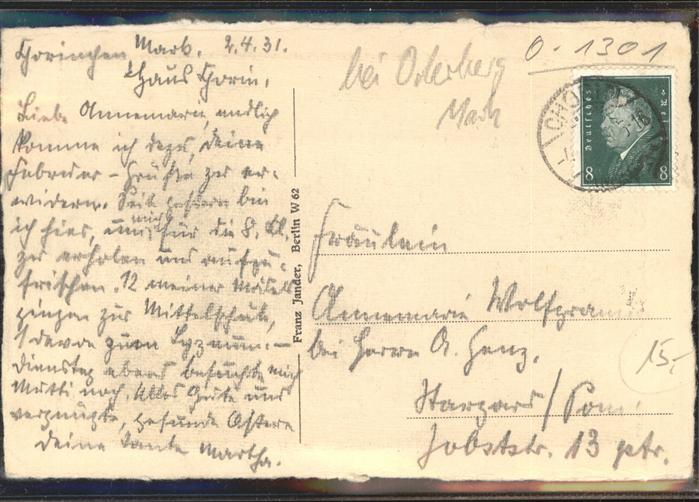 Chorinchen Mark. 2.4.31.
Haus Chorin.
Liebe Annemarie, endlich
komme ich dazu, deine
Februar-Grüße zu er-
widern. Seit gestern bin
ich hier, um mich für die 8. Kl.
zu erholen und aufzu-
frischen. 12 meiner Mädels
gingen zur Mittelschule,
1 davon zum Lyzeum. –
Dienstag abend besuchte mich
Mutti noch. Alles Gute und
vergnügte, gesunde Ostern
Deine Tante Martha.
bei Oderberg
Mark
0-1301
Deutsches Reich
8 8
CHO
Franz Jander, Berlin W 62
Fräulein
Annemarie Wolfgramm
bei Herrn A. Genz.
Stargard / Pom.
Jobststr. 13 ptr.
15,-